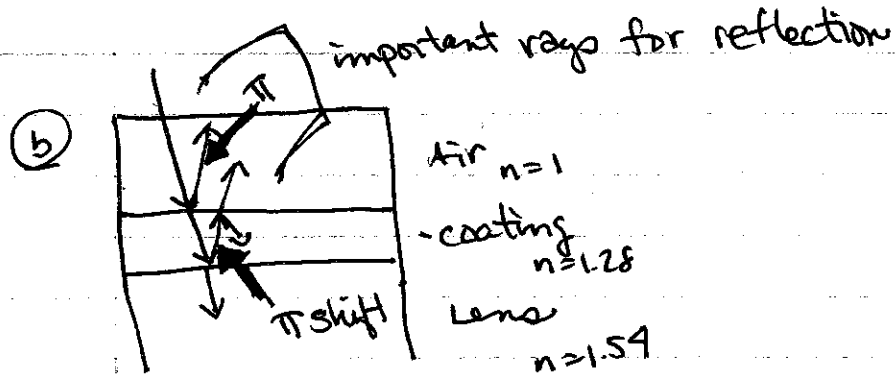 important rays for reflection
π
b
Air n=1
-coating n=1.28
π shift
Lens n=1.54